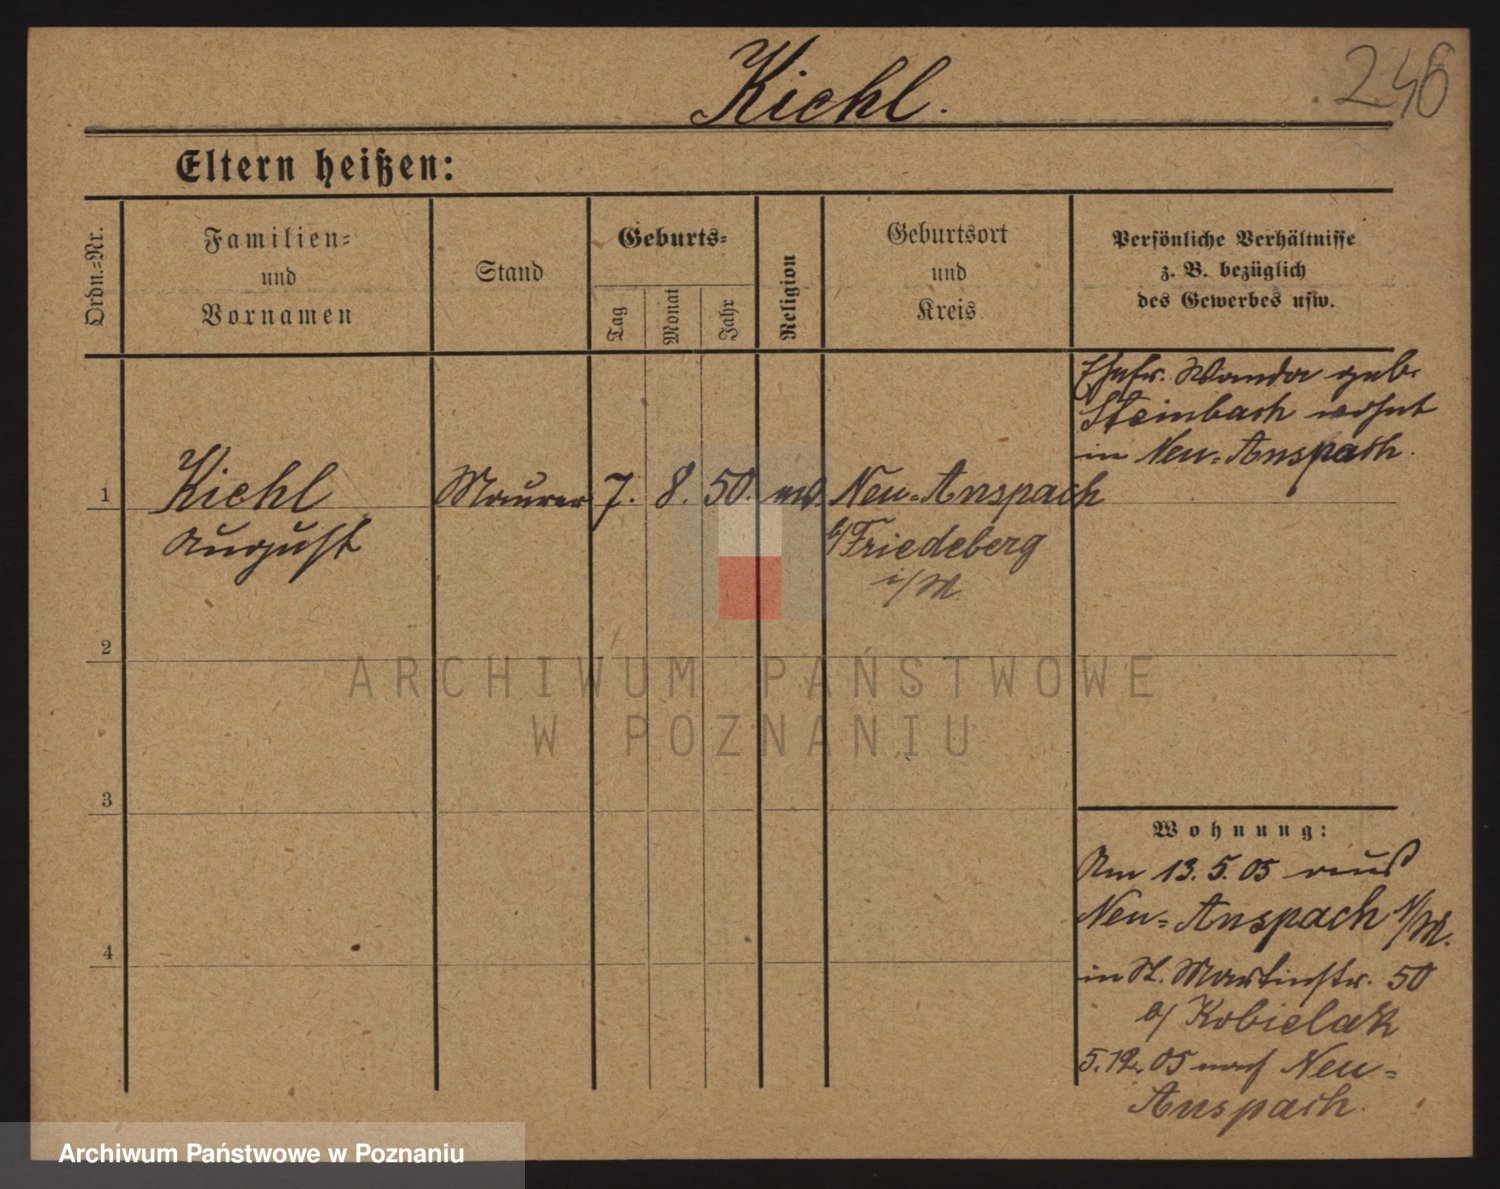 Kiehl.
246
Eltern heißen:
Ordn.=Nr.
Familien=
und
Vornamen
Stand
Geburts=
Tag
Monat
Jahr
Religion
Geburtsort
und
Kreis
Persönliche Verhältnisse
z. B. bezüglich
des Gewerbes usw.
Ehefr. Wanda geb.
Steinbach wohnt
in Neu=Anspach.
1
Kiehl
August
Maurer
7.
8.
50.
Neu=Anspach
b/Friedeberg
i/M.
2
3
4
Wohnung:
Am 13. 5. 05 aus
Neu=Anspach N/M.
in St. Martinstr. 50
b/ Kobielak
5. 12. 05 nach Neu=
Anspach.
ARCHIWUM PAŃSTWOWE
W POZNANIU
Archiwum Państwowe w Poznaniu